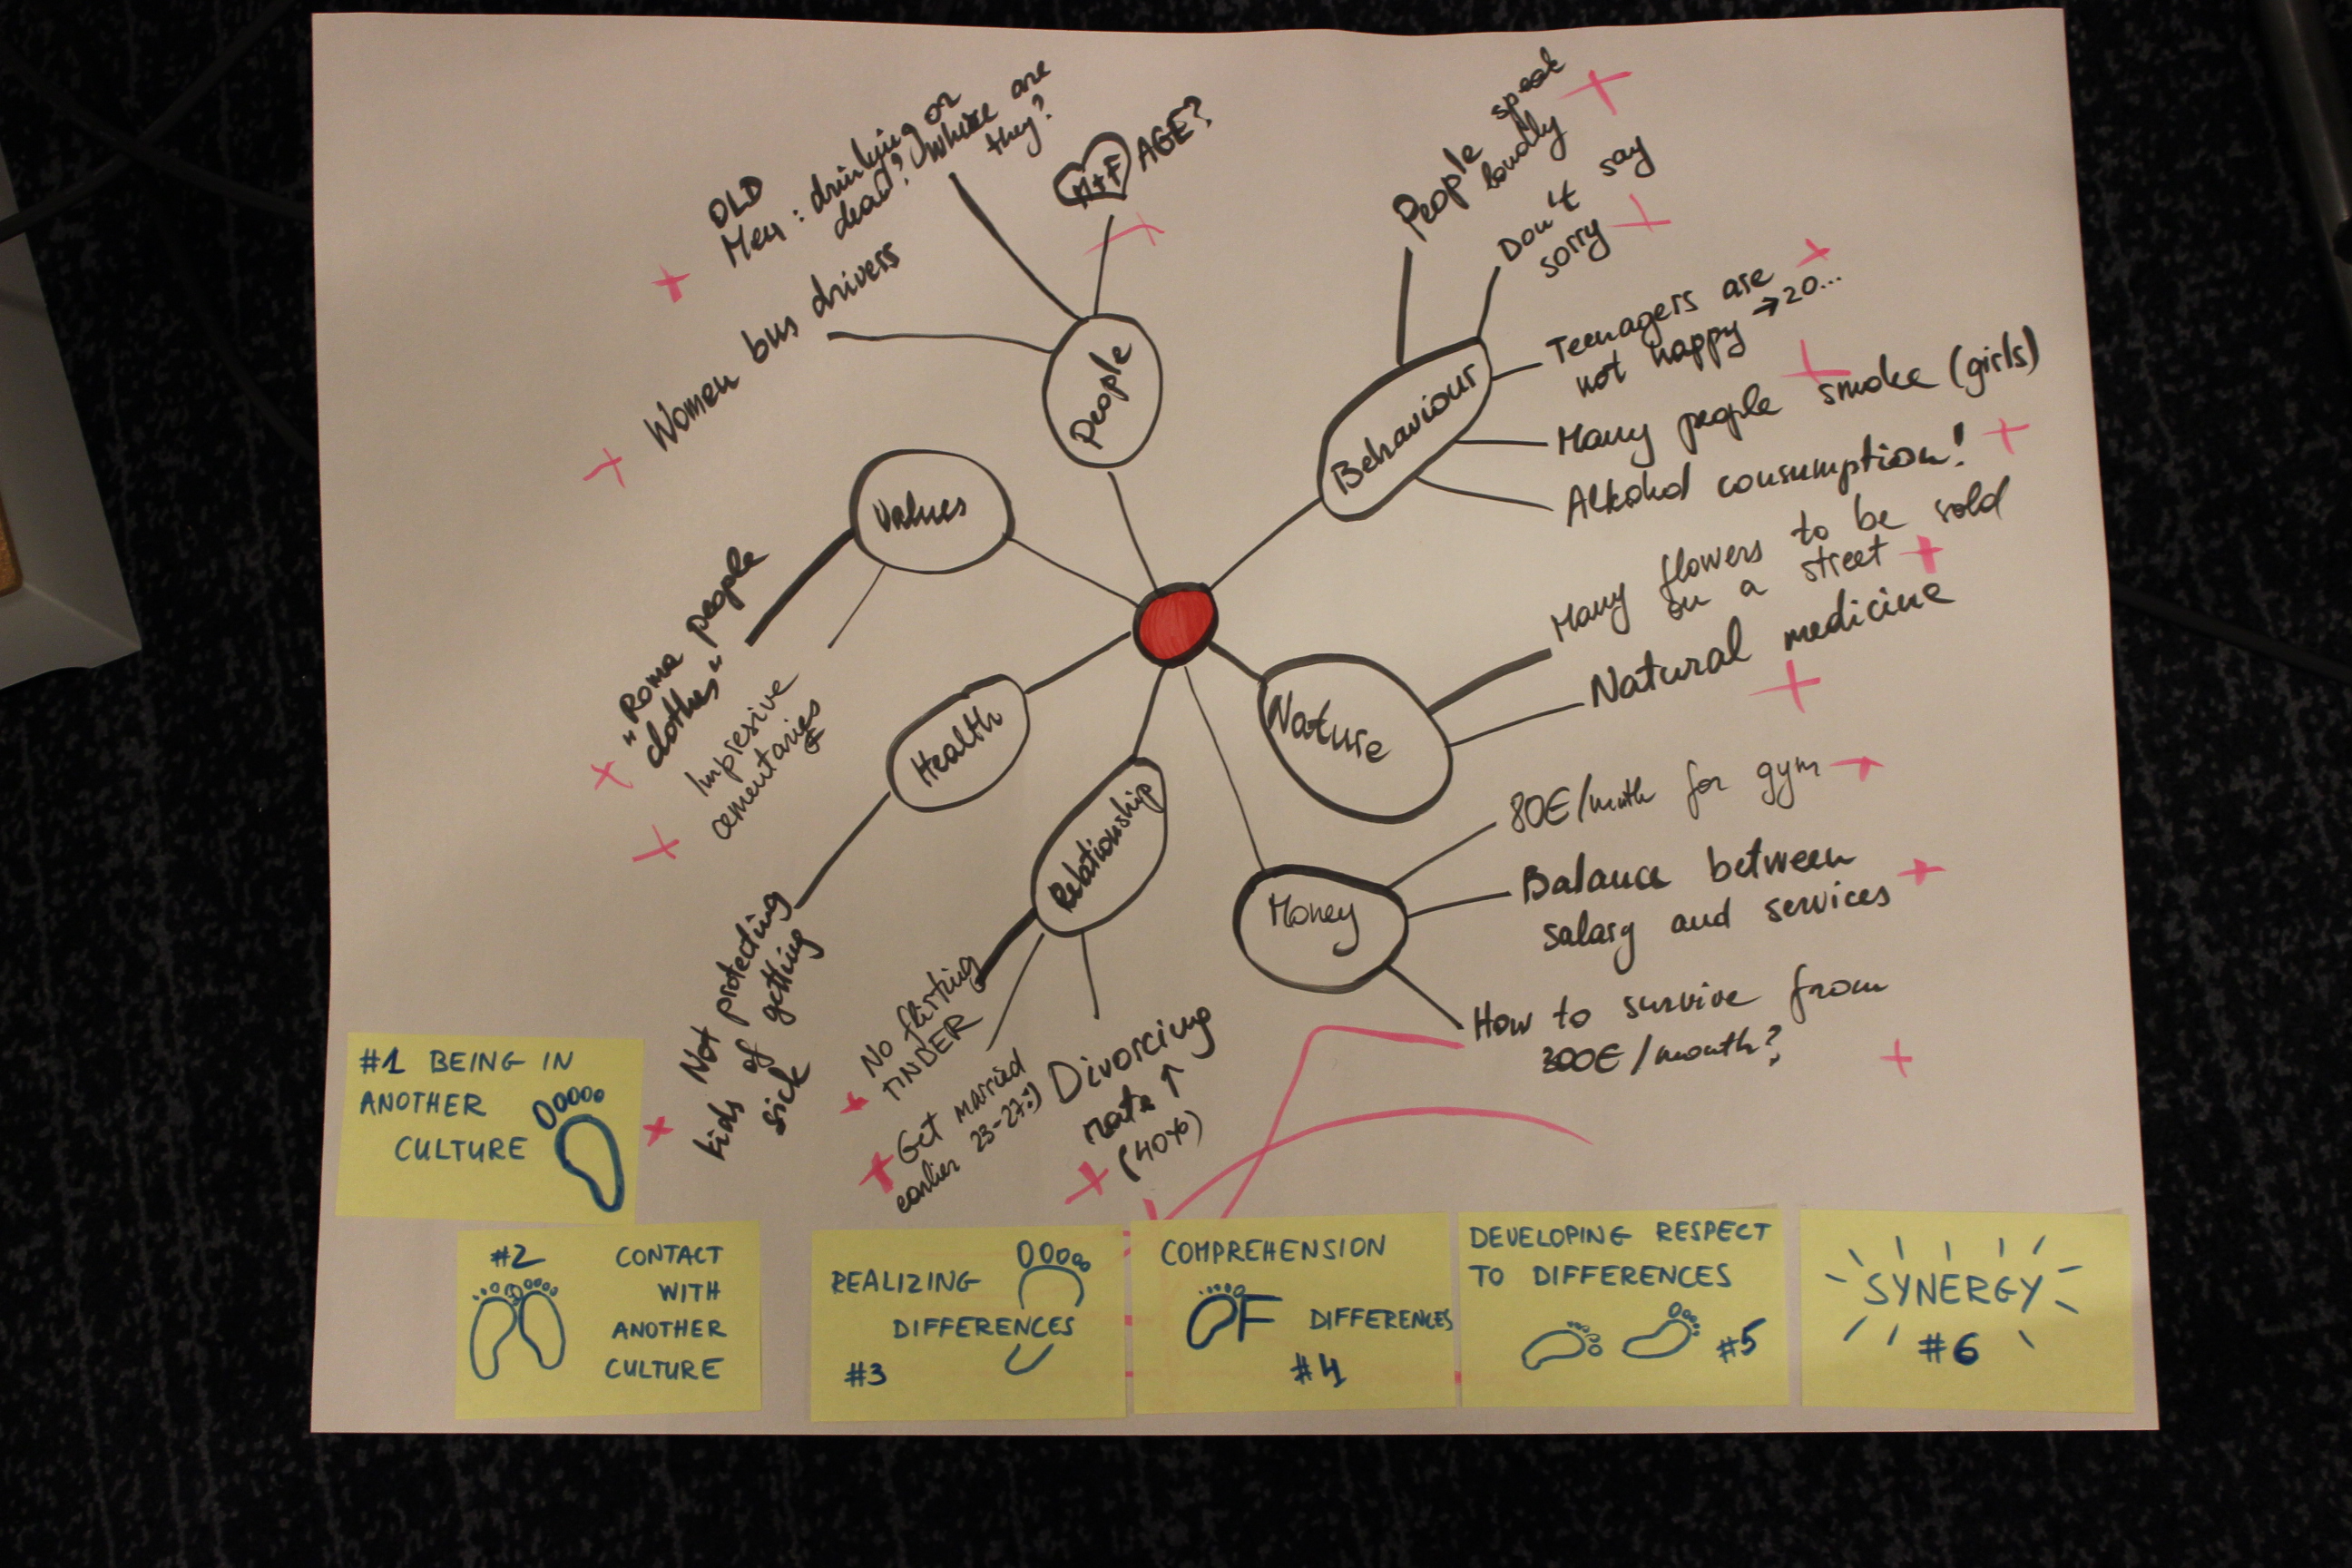 OLD
Men : drinking or
dead? Where are
they?
M+F AGE?
Women bus drivers
People
People speak
loudly
Don't say
sorry
Teenagers are
not happy → 20...
Many people smoke (girls)
Alkohol consumption!
Behaviour
Values
"Roma people
clothes"
Impresive
cementaries
Many flowers to be sold
on a street
Natural medicine
Nature
Health
Not protecting
kids of getting
sick
Relationship
No flirting
TINDER
Get married
earlier 23-27:)
Divorcing
rate ↑
(40%)
Money
80€/month for gym
Balance between
salary and services
How to survive from
300€/month?
#1 BEING IN
ANOTHER
CULTURE
#2 CONTACT
WITH
ANOTHER
CULTURE
REALIZING
DIFFERENCES
#3
COMPREHENSION
OF DIFFERENCES
#4
DEVELOPING RESPECT
TO DIFFERENCES
#5
SYNERGY
#6